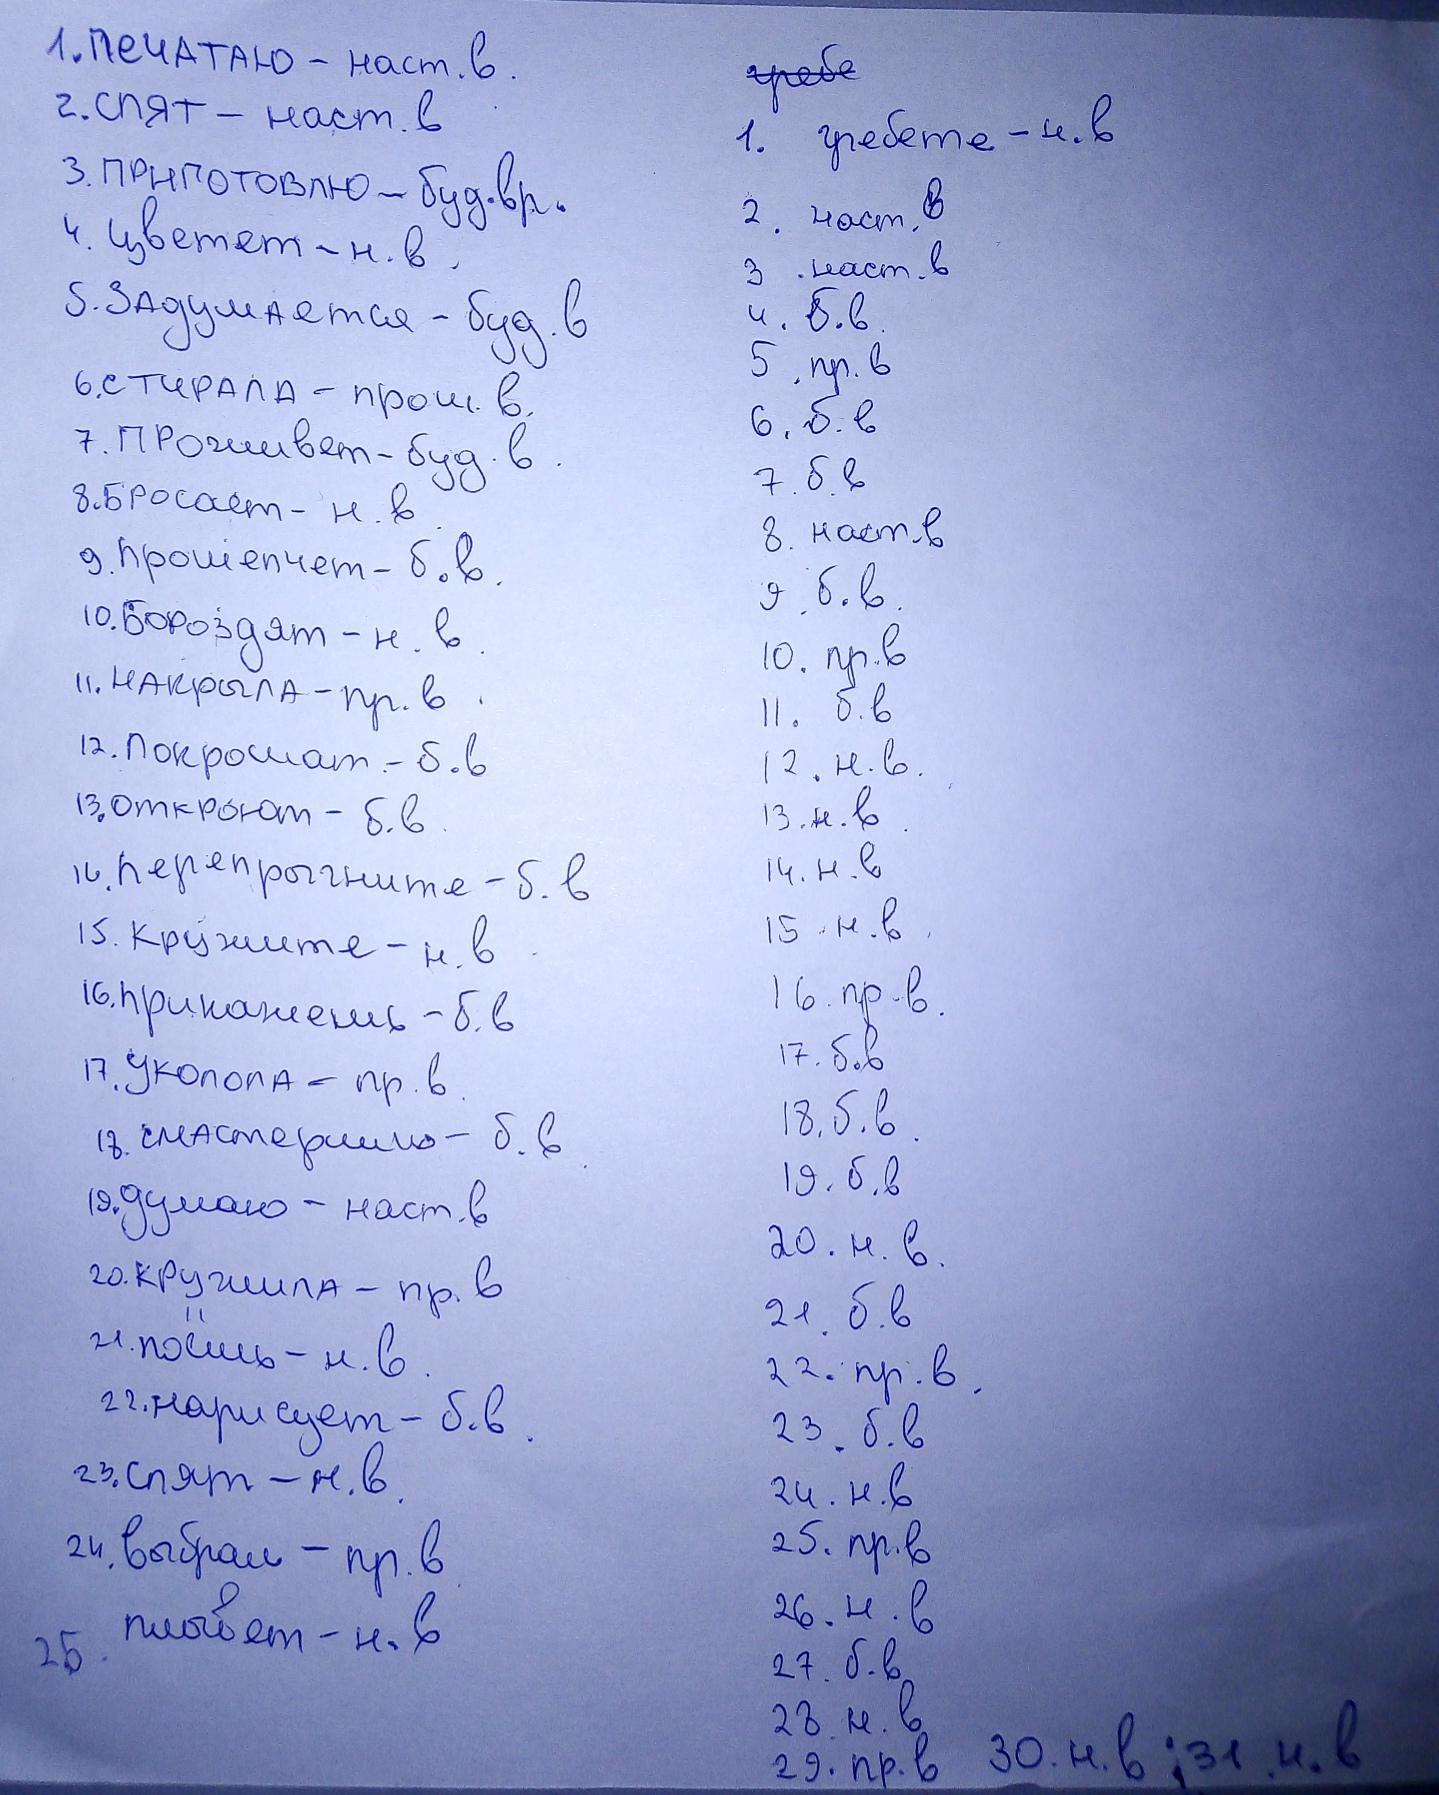 1. ПЕЧАТАЮ - наст. в.
2. СПЯТ - наст. в
3. ПРИГОТОВЛЮ - буд. вр.
4. Цветет - н. в.
5. ЗАдумАется - буд. в
6. СТИРАЛА - прош. в.
7. ПРОживет - буд. в.
8. БРОсает - н. в.
9. Прошепчет - б. в.
10. Бороздят - н. в.
11. НАКРЫЛА - пр. в.
12. Покрошат - б. в
13. откроют - б. в.
14. Перепрыгните - б. в
15. Кружите - н. в
16. Прикажешь - б. в
17. УКОЛОЛА - пр. в.
18. смАстеришь - б. в.
19. думаю - наст. в
20. КРУжиЛА - пр. в
21. поёшь - н. в.
22. нарисует - б. в.
23. спят - н. в.
24. выбрал - пр. в.
25. плывет - н. в
гребе
1. гребете - н. в
2. наст. в
3. наст. в
4. б. в.
5. пр. в
6. б. в
7. б. в
8. наст. в
9. б. в.
10. пр. в
11. б. в
12. н. в.
13. н. в.
14. н. в
15. н. в.
16. пр. в.
17. б. в
18. б. в.
19. б. в
20. н. в.
21. б. в
22. пр. в.
23. б. в
24. н. в
25. пр. в
26. н. в
27. б. в
28. н. в
29. пр. в 30. н. в; 31. н. в